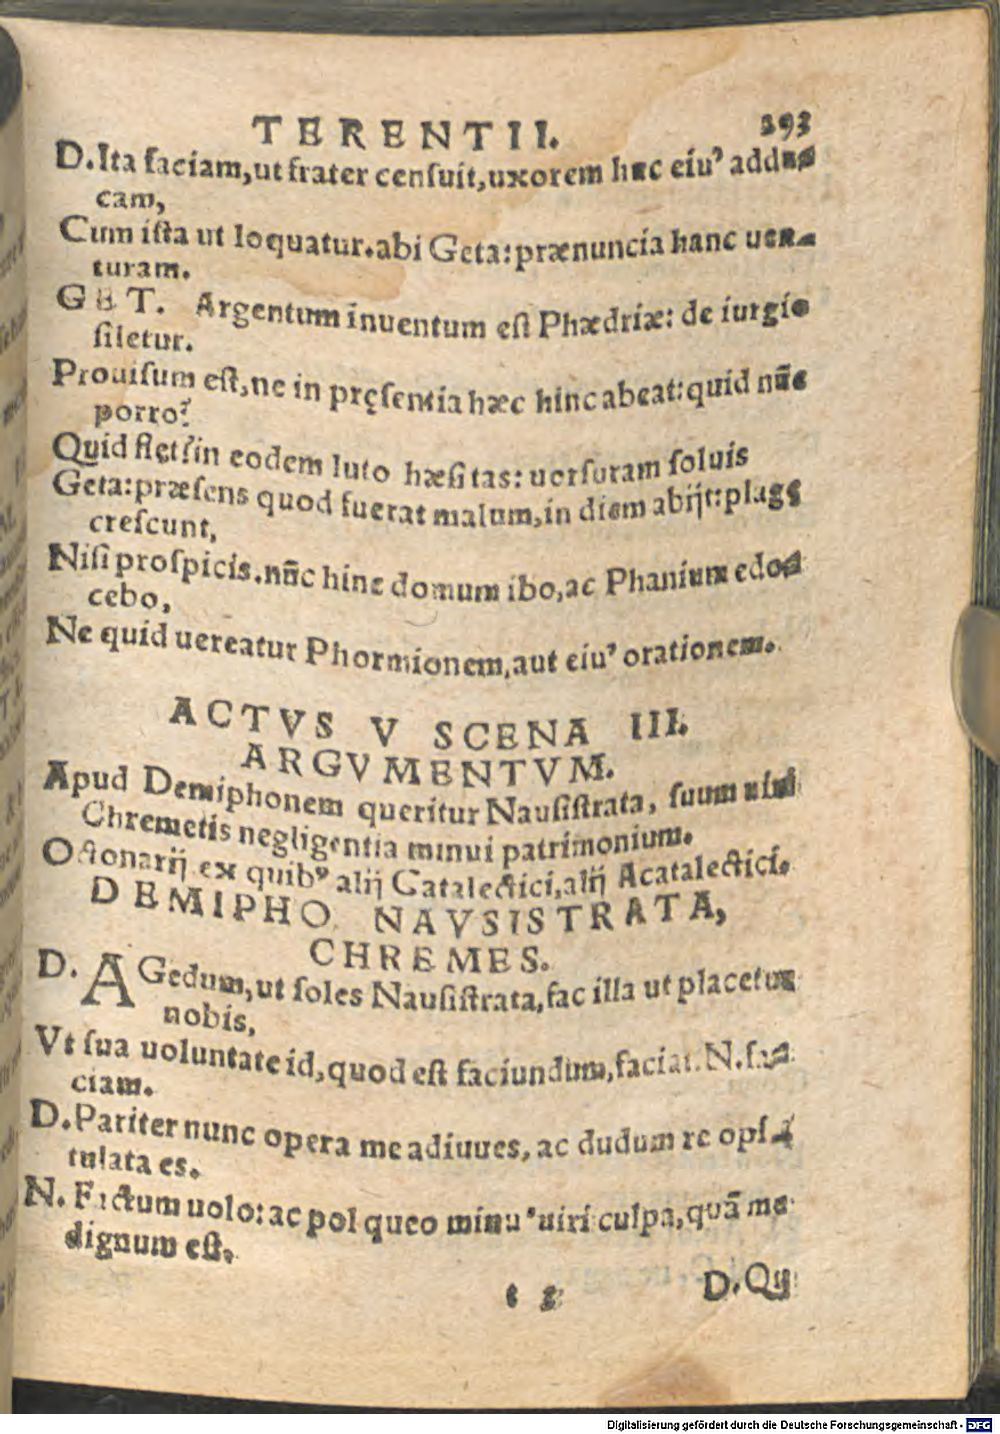 TERENTII. 293
D.Ita faciam,ut frater censuit,uxorem huc eiuꝰ addu-
cam,
Cum ista ut loquatur.abi Geta:prænuncia hanc uen-
turam.
GET. Argentum inuentum est Phædriæ: de iurgio
siletur.
Prouisum est,ne in pręsentia hæc hinc abeat:quid nūc
porro?
Quid fiet?in eodem luto hæsitas: uorsuram soluis
Geta:præsens quod fuerat malum,in diem abijt:plagę
crescunt,
Nisi prospicis.nūc hinc domum ibo,ac Phanium edo-
cebo,
Ne quid uereatur Phormionem,aut eiuꝰ orationem.
ACTVS V SCENA III.
ARGVMENTVM.
Apud Demiphonem queritur Nausistrata, suum uiri
Chremetis negligentia minui patrimonium.
Octonarij ex quibꝰ alij Catalectici,alij Acatalectici.
DEMIPHO NAVSISTRATA,
CHREMES.
D. AGedum,ut soles Nausistrata,fac illa ut placetur
nobis,
Vt sua uoluntate id,quod est faciundum,faciat.N.fa-
ciam.
D.Pariter nunc opera me adiuues, ac dudum re opi-
tulata es.
N. Factum uolo:ac pol queo minuꝰ uiri culpa,quā me
dignum est.
t 3 D.Qij